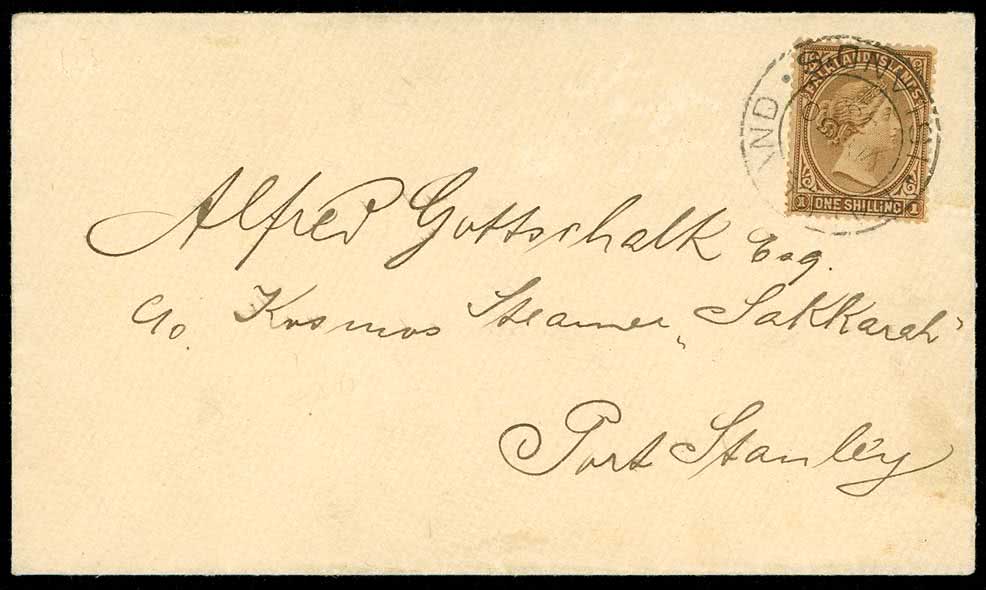 FALKLAND ISLANDS
1 ONE SHILLING 1
Alfred Gottschalk Esq.
c/o. Kosmos Steamer „Sakkarah"
Port Stanley